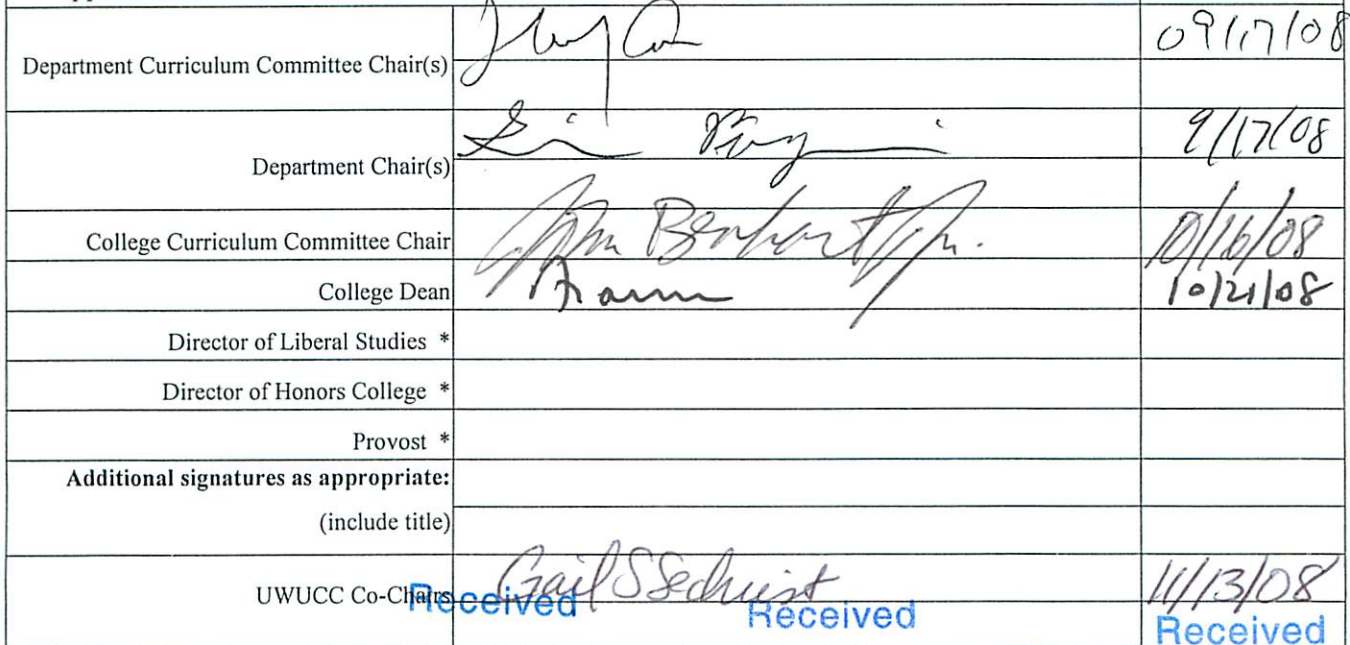 Department Curriculum Committee Chair(s) 09/17/08
Department Chair(s) 9/17/08
College Curriculum Committee Chair John Benhart, Jr. 10/16/08
College Dean 10/21/08
Director of Liberal Studies *
Director of Honors College *
Provost *
Additional signatures as appropriate:
(include title)
UWUCC Co-Chairs Gail S Sechrist 11/13/08
Received Received Received